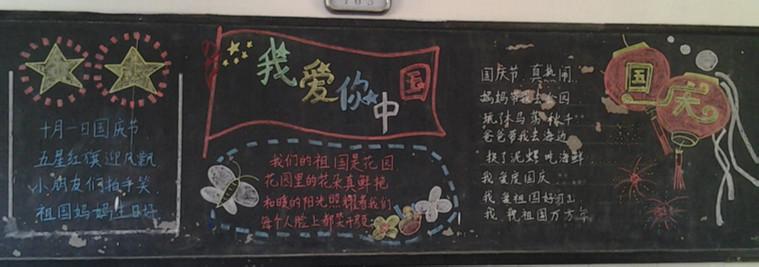 103
十月一日国庆节
五星红旗迎风飘
小朋友们拍手笑
祖国妈妈生日好
我爱你中国
我们的祖国是花园
花园里的花朵真鲜艳
和暖的阳光照耀着我们
每个人脸上都笑开颜
国庆节 真热闹
妈妈带我去公园
玩了木马荡秋千
爸爸带我去海边
捉了泥螺吃海鲜
我爱度国庆
我爱祖国好河山
我祝祖国万万年
国庆